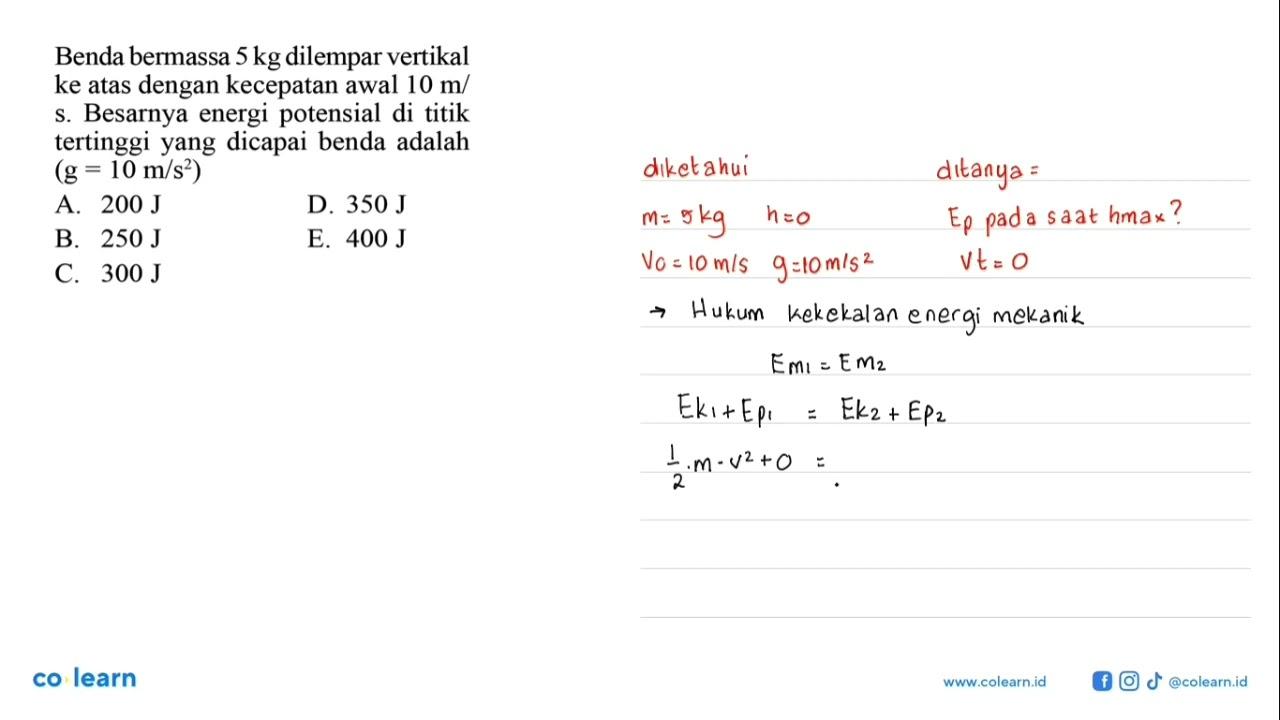 Benda bermassa 5 kg dilempar vertikal
ke atas dengan kecepatan awal 10 m/
s. Besarnya energi potensial di titik
tertinggi yang dicapai benda adalah
(g = 10 m/s²)
A. 200 J D. 350 J
B. 250 J E. 400 J
C. 300 J
diketahui ditanya =
m = 5 kg h=0 Ep pada saat hmax?
Vo = 10 m/s g=10 m/s² Vt = 0
→ Hukum kekekalan energi mekanik
Em1 = Em2
Ek1 + Ep1 = Ek2 + Ep2
1/2 . m . v² + 0 =
co learn
www.colearn.id @colearn.id